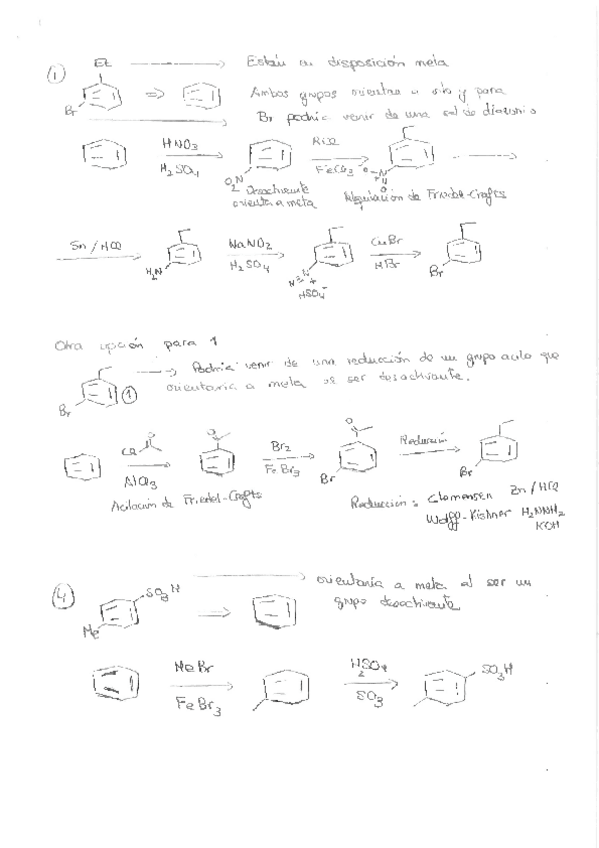 ① Et → Están en disposición meta
Br ⇒ Ambos grupos orientan a orto y para
→ Br podría venir de una sal de diazonio
HNO3 H2SO4 O2N RCl FeCl3
Desactivante orienta a meta Alquilación de Friedel-Crafts
Sn/HCl H2N NaNO2 H2SO4 N≡N+ HSO4- CuBr HBr Br
Otra opción para 1
Br ① → Podría venir de una reducción de un grupo acilo que
orientaría a meta al ser desactivante.
Cl O AlCl3 O Br2 FeBr3 O Br Reducción Br
Acilación de Friedel-Crafts Reducción: Clemensen Zn/HCl
Wolff-Kishner H2NNH2
KOH
④ SO3H Me → orientaría a meta al ser un
grupo desactivante
MeBr FeBr3 H2SO4 SO3 SO3H